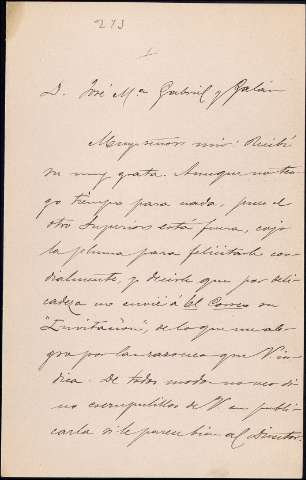 273
1
D. José Mª Gabriel y Galán
Muy señor mío: Recibí
su muy grata. Aunque no ten-
go tiempo para nada, pues el
otro Superior está fuera, cojo
la pluma para felicitarle cor-
dialmente, y decirle que por deli-
cadeza no envié á El Correo su
"Invitación", de lo que me ale-
gro por las razones que V. in-
dica. De todos modos no veo
escrupulillos de V. en publi-
carla si le parece bien al Director.